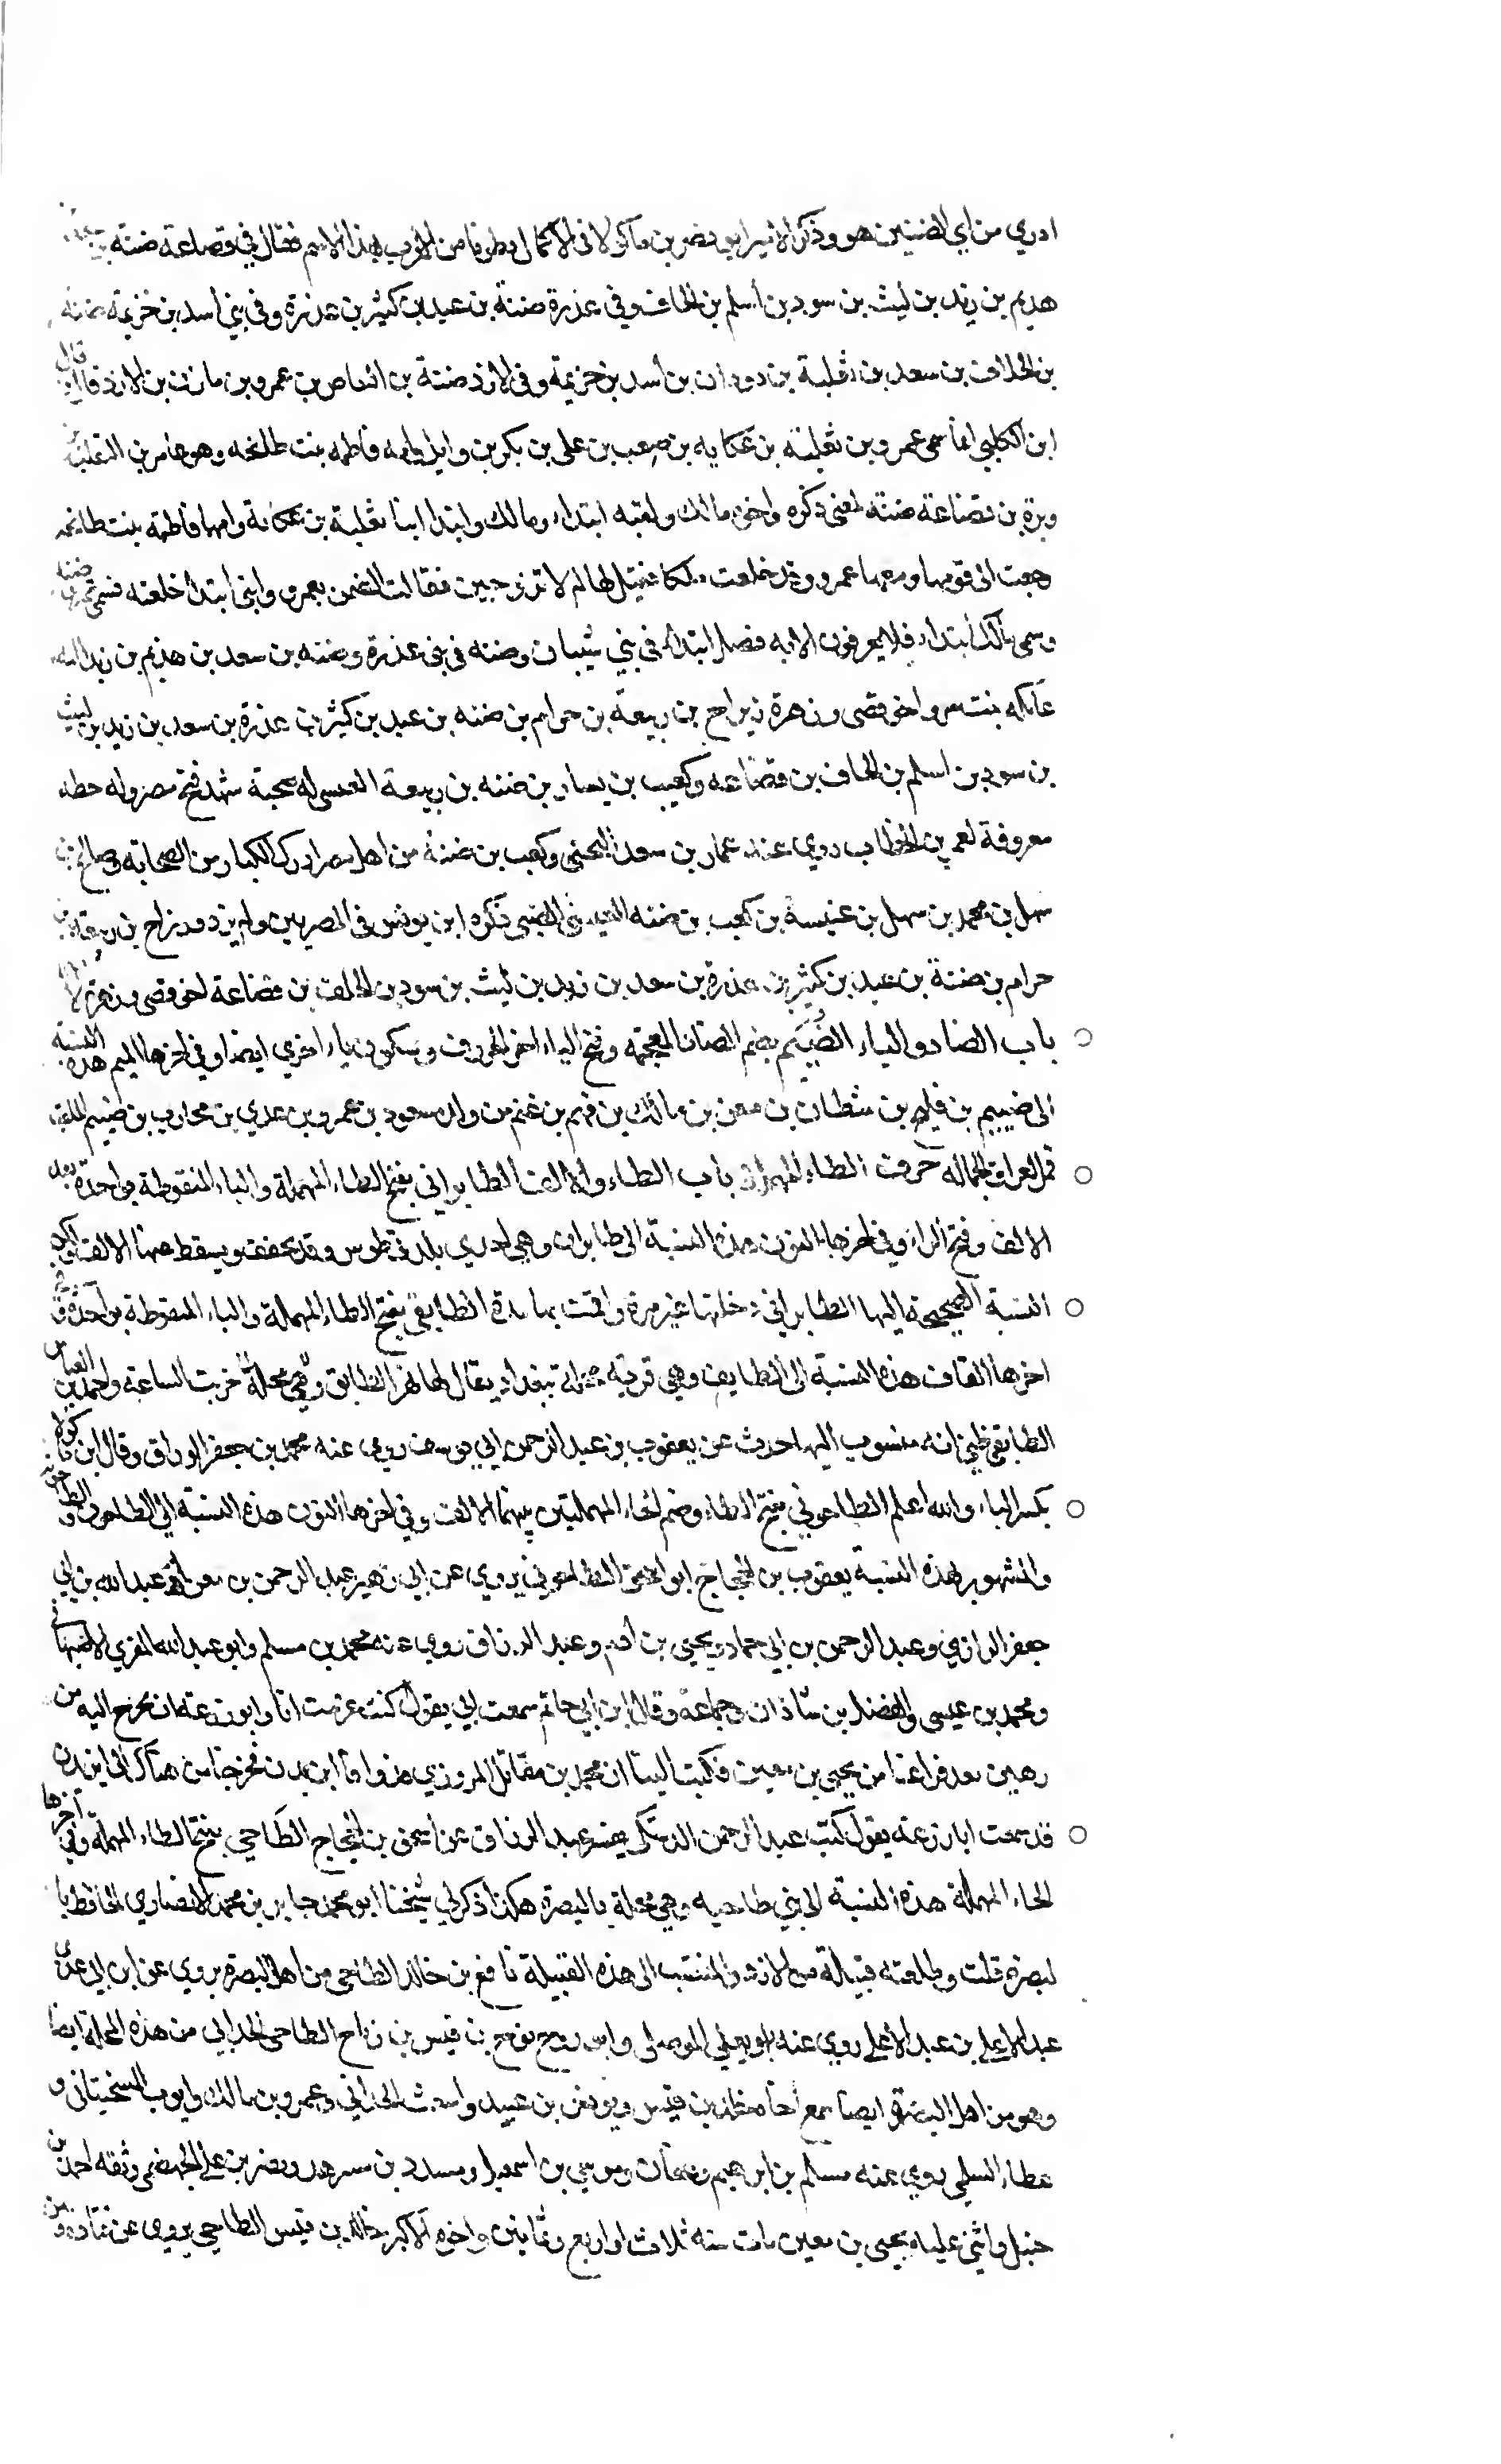 ادري من اي الضنيين هو وذكر الامير ابو نصر بن ماكولا في الاكمال بطونا من العرب بهذا الاسم فقال في قضاعة ضنة بن سعد
هديم بن زيد بن ليث بن سود بن اسلم بن الحاف وفي عذرة ضنة بن عبد بن كثير بن عذرة وفي بني اسد بن خزيمة ضنه
بن الحلاف بن سعد بن ثعلبة بن دودان بن أسد بن خزيمة وفي الازد ضنة بن العاص بن عمرو بن مازن بن الازد قال
ابن الكلبي انما سمى عمرو بن ثعلبة بن عكابه بن صعب بن علي بن بكر بن وايل وامه فاطمه بنت طابخه وهو عامر بن الثعلب بن
وبرة بن قضاعة ضنة لمعنى ذكره واخوه مالك ولقبه ابتداء ومالك وابتدا ابنا ثعلبة بن عكابة وامهما فاطمة بنت طابخه
رجعت الى قومها ومعها عمرو وقد خلعت مالكا فقيل لها لم لا تزوجين فقالت اضن بعمرو وابني ابتدا خلعته فسمي عمرو ضنه
وسمى مالك ابتداء فلا يعرفون الا به فصار ابتداء في بني شيبان وضنه في بني عذرة وضنه بن سعد بن هذيم بن زيد
عاتكه بنت مر واخو قصى وزهرة رزاح بن ربيعة بن حرام بن ضنه بن عبد بن كثير بن عذرة بن سعد بن زيد بن ليث
بن سود بن اسلم بن الحاف بن قضاعه وكعب بن يسار بن ضنه بن ربيعة العبسي له صحبة شهد فتح مصر وله خطه
معروفة لعمر بن الخطاب روي عنه عمار بن سعد التجيبي وكعب بن ضنة من اهل مصر ادرك الكبار من الصحابة وصالح بن
سهل بن محمد بن سهل بن عنبسة بن كعب بن ضنه العبسي الضني ذكره ابن يونس في المصريين ولم يزد ورزاح بن ربيعة بن
حرام بن ضنة بن عبد بن كثير بن عذرة بن سعد بن زيد بن ليث بن سود بن الحاف بن قضاعة اخو قصى وزهرة لامهما
باب الضاد والياء الضُيَيم بضم الضاد المعجمة وفتح الياء اخر الحروف وسكون ياء اخري ايضا وفي اخرها الميم هذه النسبة
الى ضييم بن فليح بن شطان بن معن بن مالك بن فهم بن غنم من ولده مسعود بن عمرو بن عدي بن محارب بن ضييم الملقب
قمر العراق لجماله حرف الطاء المهملة باب الطاء والالف الطابراني بفتح الطاء المهملة والباء المنقوطة بواحدة بعد
الالف وفتح الراء وفي اخرها النون هذه النسبة الى طابران وهي احدي بلدتي طوس وقد يخفف ويسقط عنها الالف ولكن
النسبة الصحيحة اليها الطابراني دخلتها غير مرة واقمت بها مدة الطابقي بفتح الطاء المهملة والباء المنقوطة بواحدة وفي
اخرها القاف هذه النسبة الى الطابق وهي قرية محلة ببغداد يقال لها نهر الطابق وهي محلة خربت الساعة واحمد بن العباس
الطابقي ظني انه منسوب اليها حدث عن يعقوب بن عبد الرحمن ابي يوسف روى عنه محمد بن جعفر الوراق وقال ابن ماكولا
بكسر الباء والله اعلم الطاحوني بفتح الطاء وضم الحاء المهملتين بينهما الالف وفي اخرها النون هذه النسبة الى الطاحون والطاحونه
والمشهور بهذه النسبة يعقوب بن الحجاج ابو اسحق الطاحوني يروي عن ابي زهير عبد الرحمن بن مغرا وعبد الله بن ابي
جعفر الرازي وعبد الرحمن بن ابي حماد ويحيى بن ادم وعبد الرزاق روى عنه محمد بن مسلم وابو عبد الله المقري الاصبهاني
ومحمد بن عيسى والفضل بن شاذان وجماعة وقال ابن ابي حاتم سمعت ابي يقول كنت عزمت انا وابو زرعة ان نخرج اليه من
رهبن بعد فراغنا من يحيى بن معين فكتب الينا ان محمد بن مقاتل المروزي فخرجنا من هناك
قد سمعت ابا زرعه يقول كتب عبد الرحمن الدشتكي تفسير عبد الرزاق عن اسحق بن الحجاج الطَاحِي بفتح الطاء المهملة وفي آخرها
الحاء المهملة هذه النسبة الى بني طاحيه وهي محلة بالبصرة هكذا ذكر لي شيخنا ابو محمد جابر بن محمد الانصاري الحافظ با
لبصره قلت وطاحية قبيلة من الازد والمنتسب الى هذه القبيلة نافع بن خالد الطاحي من اهل البصرة يروي عن ابن ابي عدي
عبد الاعلي بن عبد الأعلي روي عنه ابو يعلي الموصلي وابو روح نوح بن قيس بن رباح الطاحي الحداني من هذه المحلة ايضا
وهو من اهل البصرة ايضا سمع أخاه خالد بن قيس ويونس بن عبيد واشعث الحداني وعمرو بن مالك وايوب السختياني و
عطاء السلمي روى عنه مسلم بن ابراهيم وعفان وموسي بن اسمعيل ومسدد بن مسرهد ونصر بن علي الجهضمي وثقه احمد بن
حنبل واثنى عليه يحيى بن معين مات سنه ثلاث او اربع وثمانين واخوه الاكبر خالد بن قيس الطاحي يروى عن قتاده